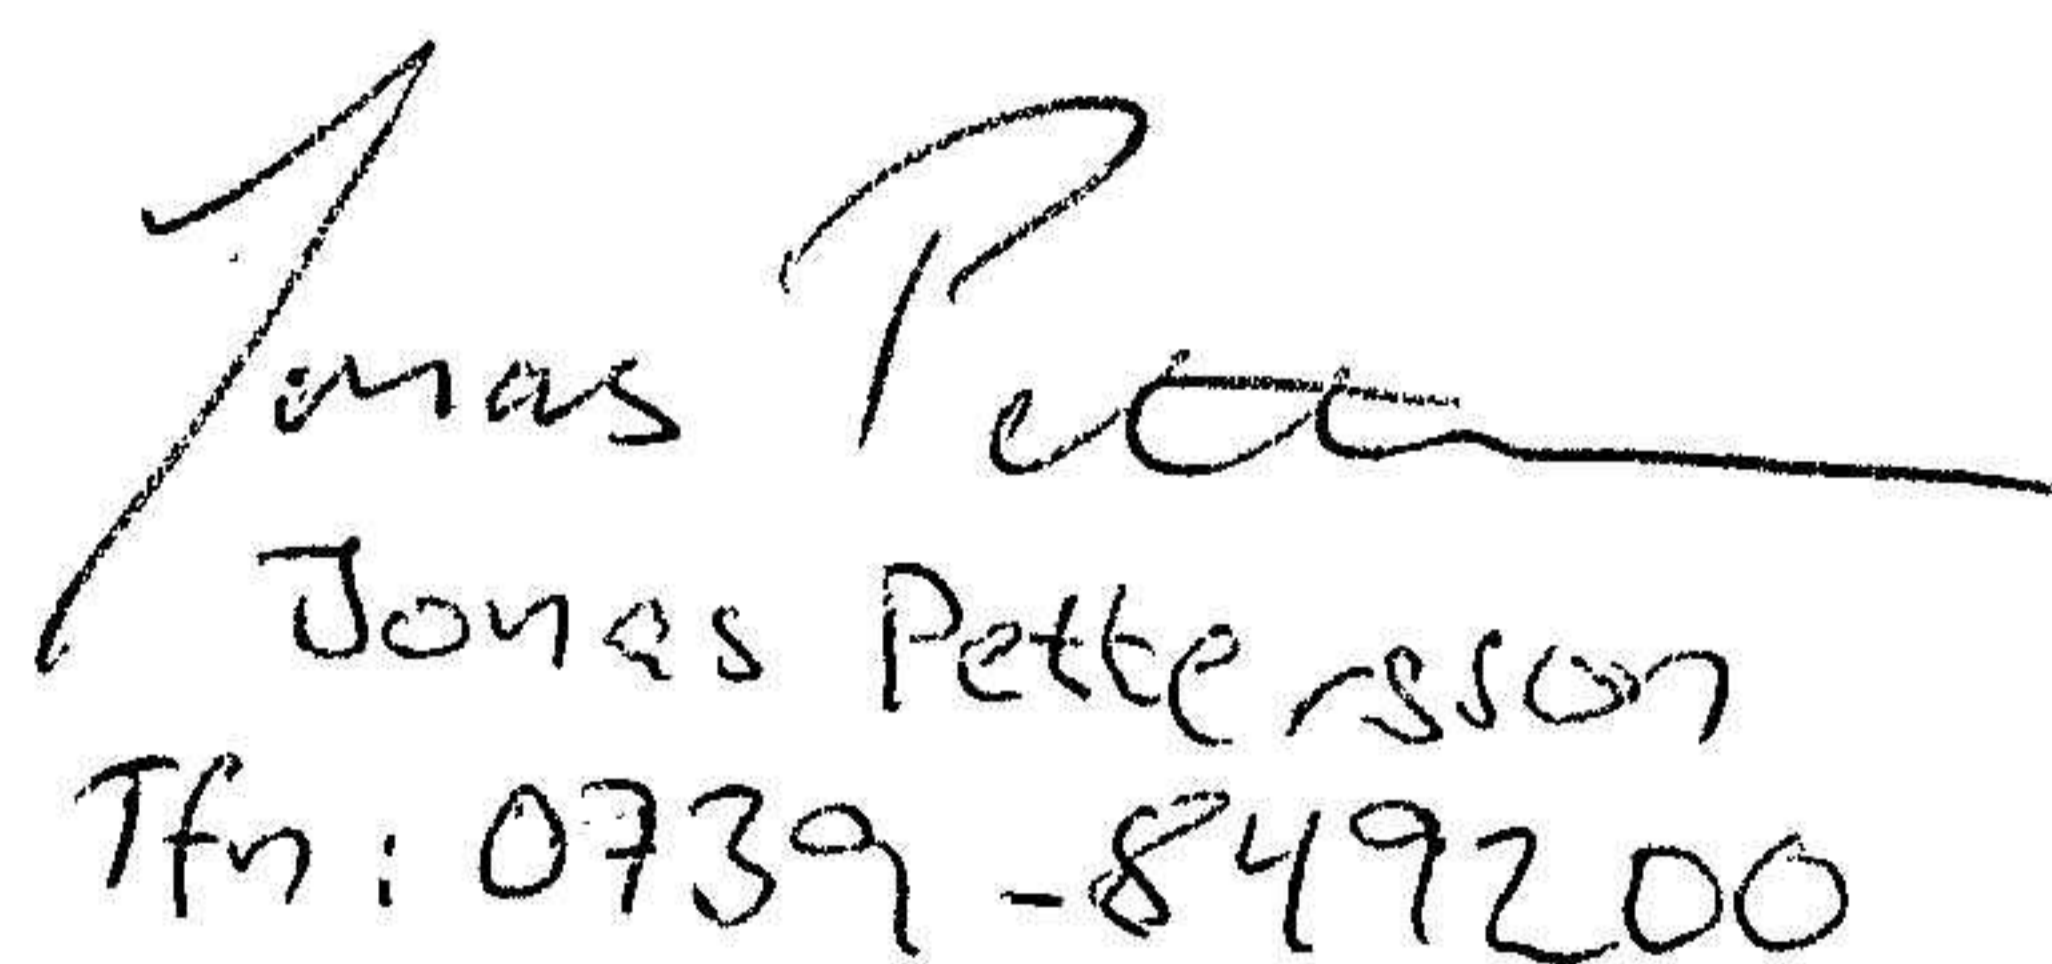 Jonas Pett
Jonas Pettersson
Tfn: 0739-849200